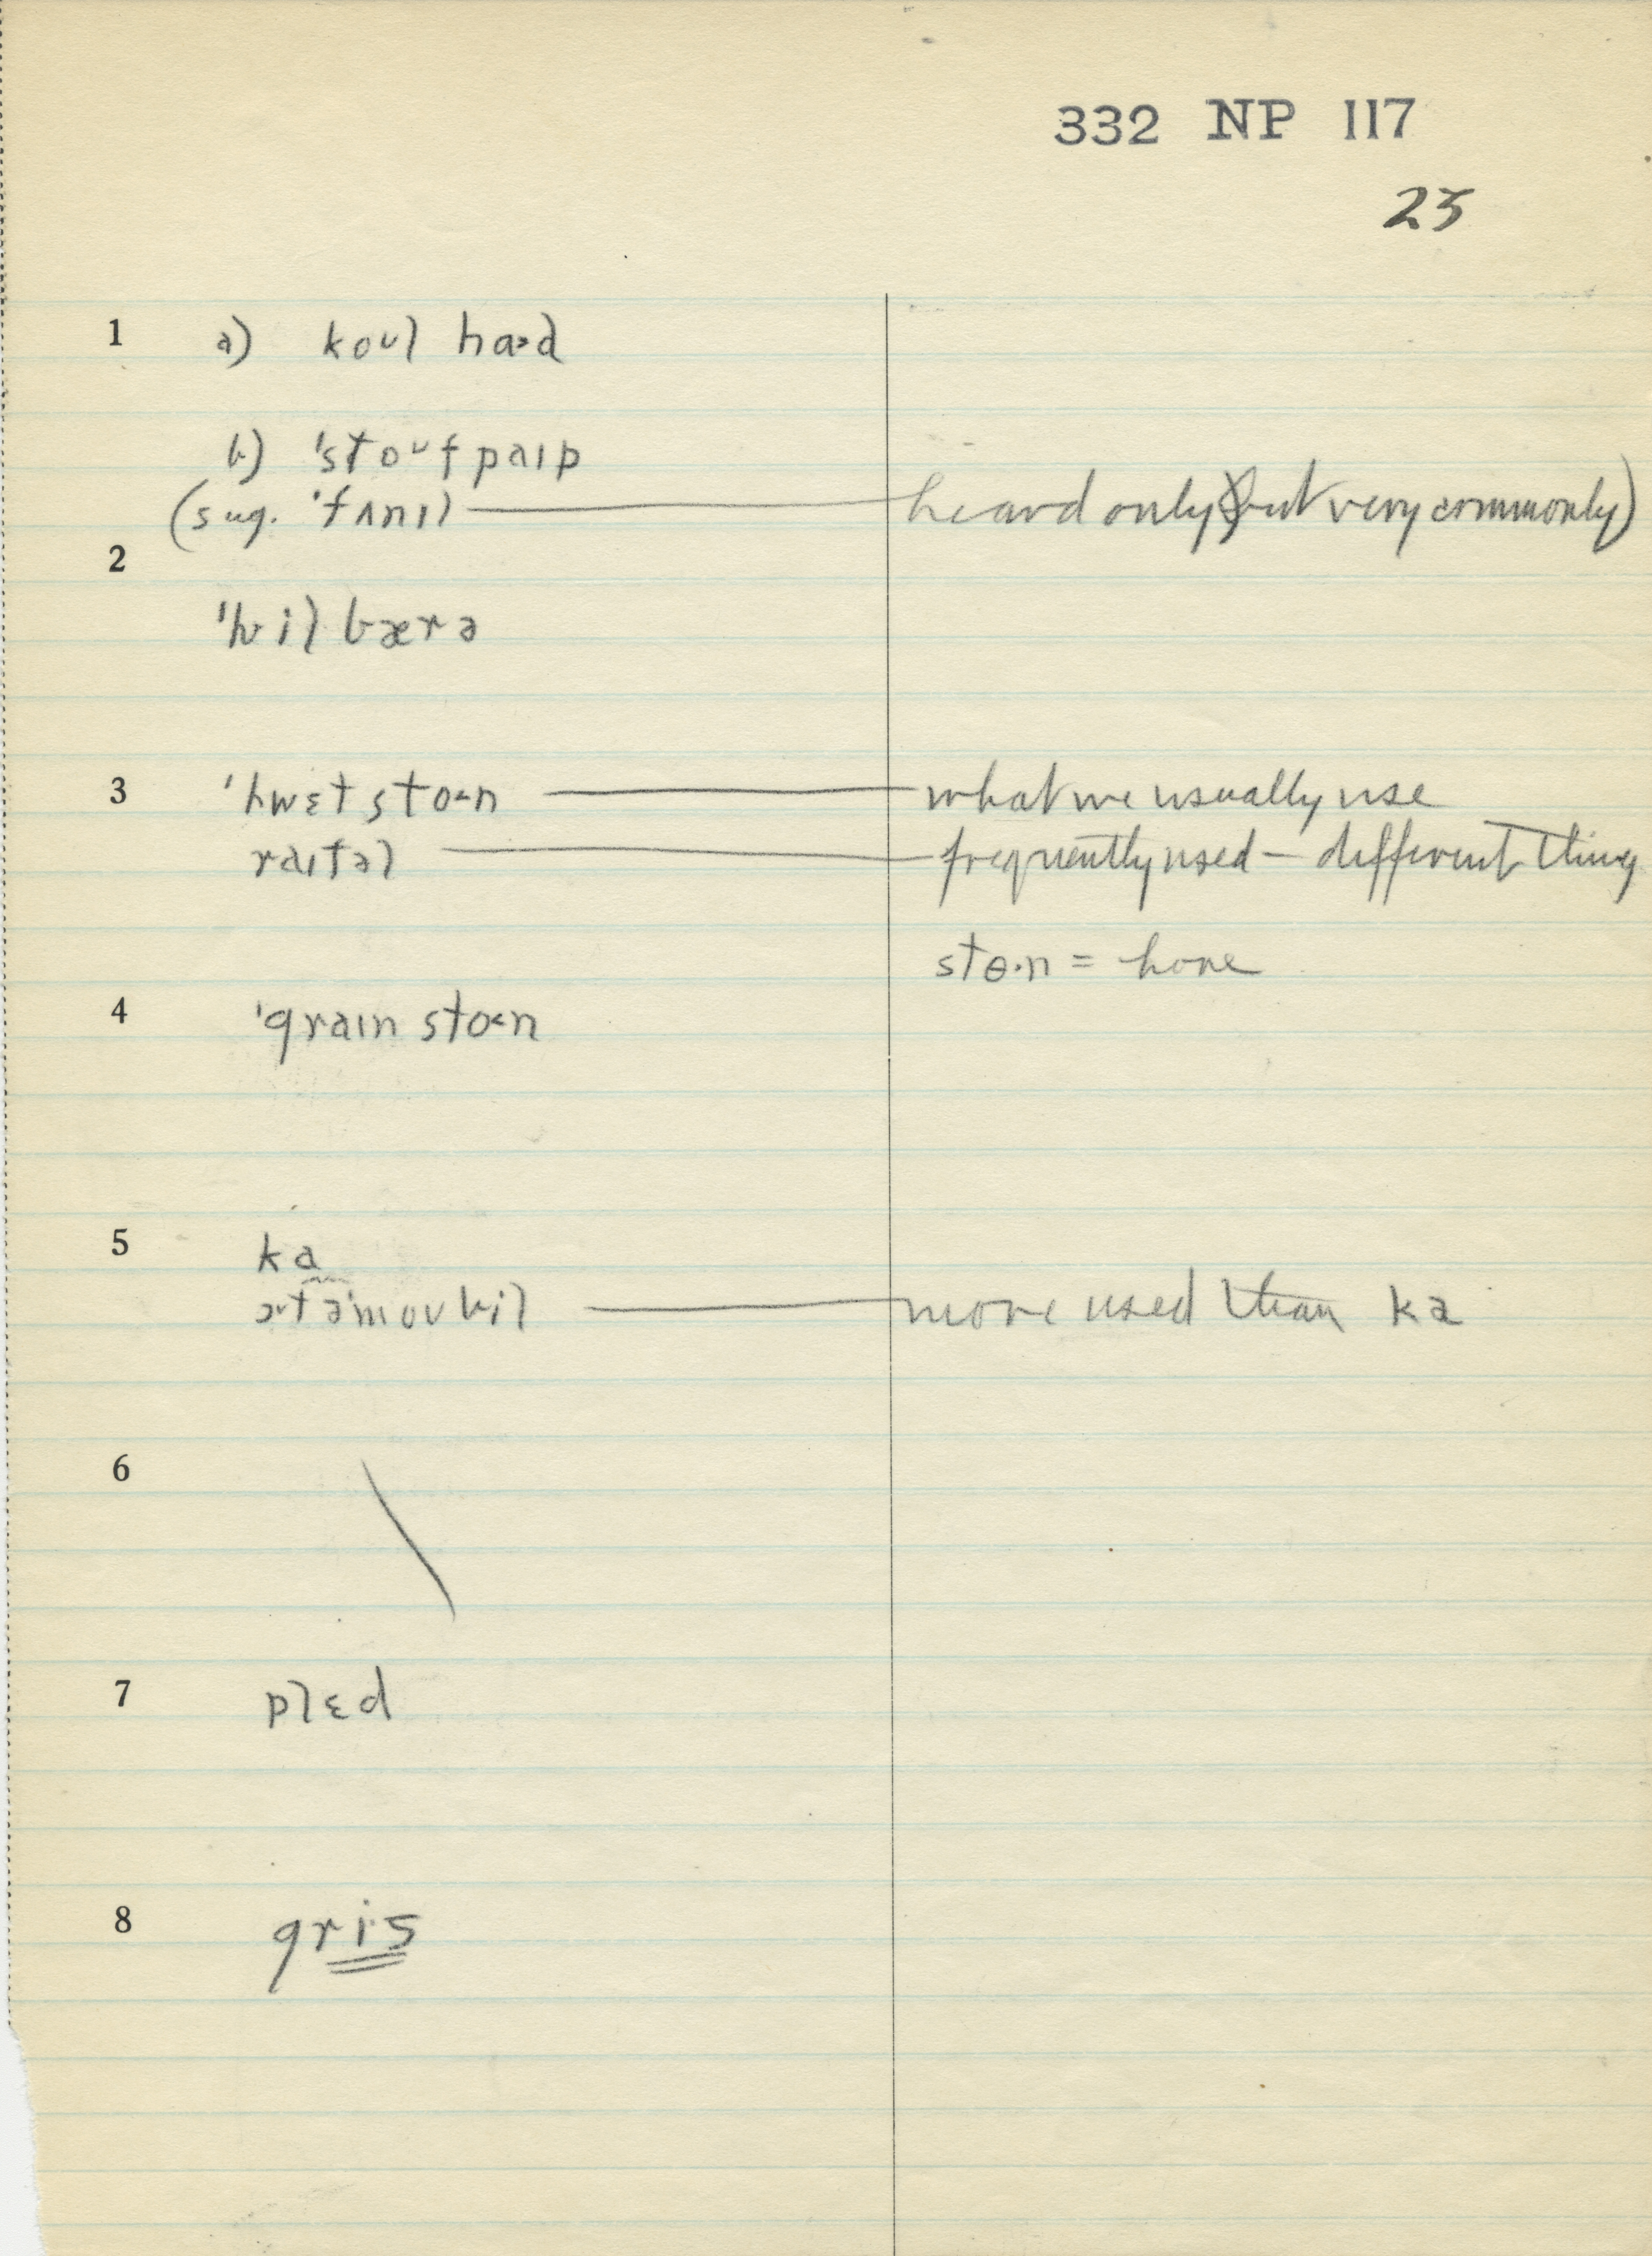 332 NP 117
23
1 a) koʊl ha˃d
b) ˈstoʊfpaɪp
(sug. ˈfʌnɪl heard only (but very commonly)
2
ˈhwilbærə
3 ˈhwɛtsto˂n what we usually use
raɪfəl frequently used – different thing
stɵ·n = hone
4 ˈgraɪnsto˂n
5 ka
ɔtəˈmoʊbil more used than ka
6
7 plɛd
8 gri·s